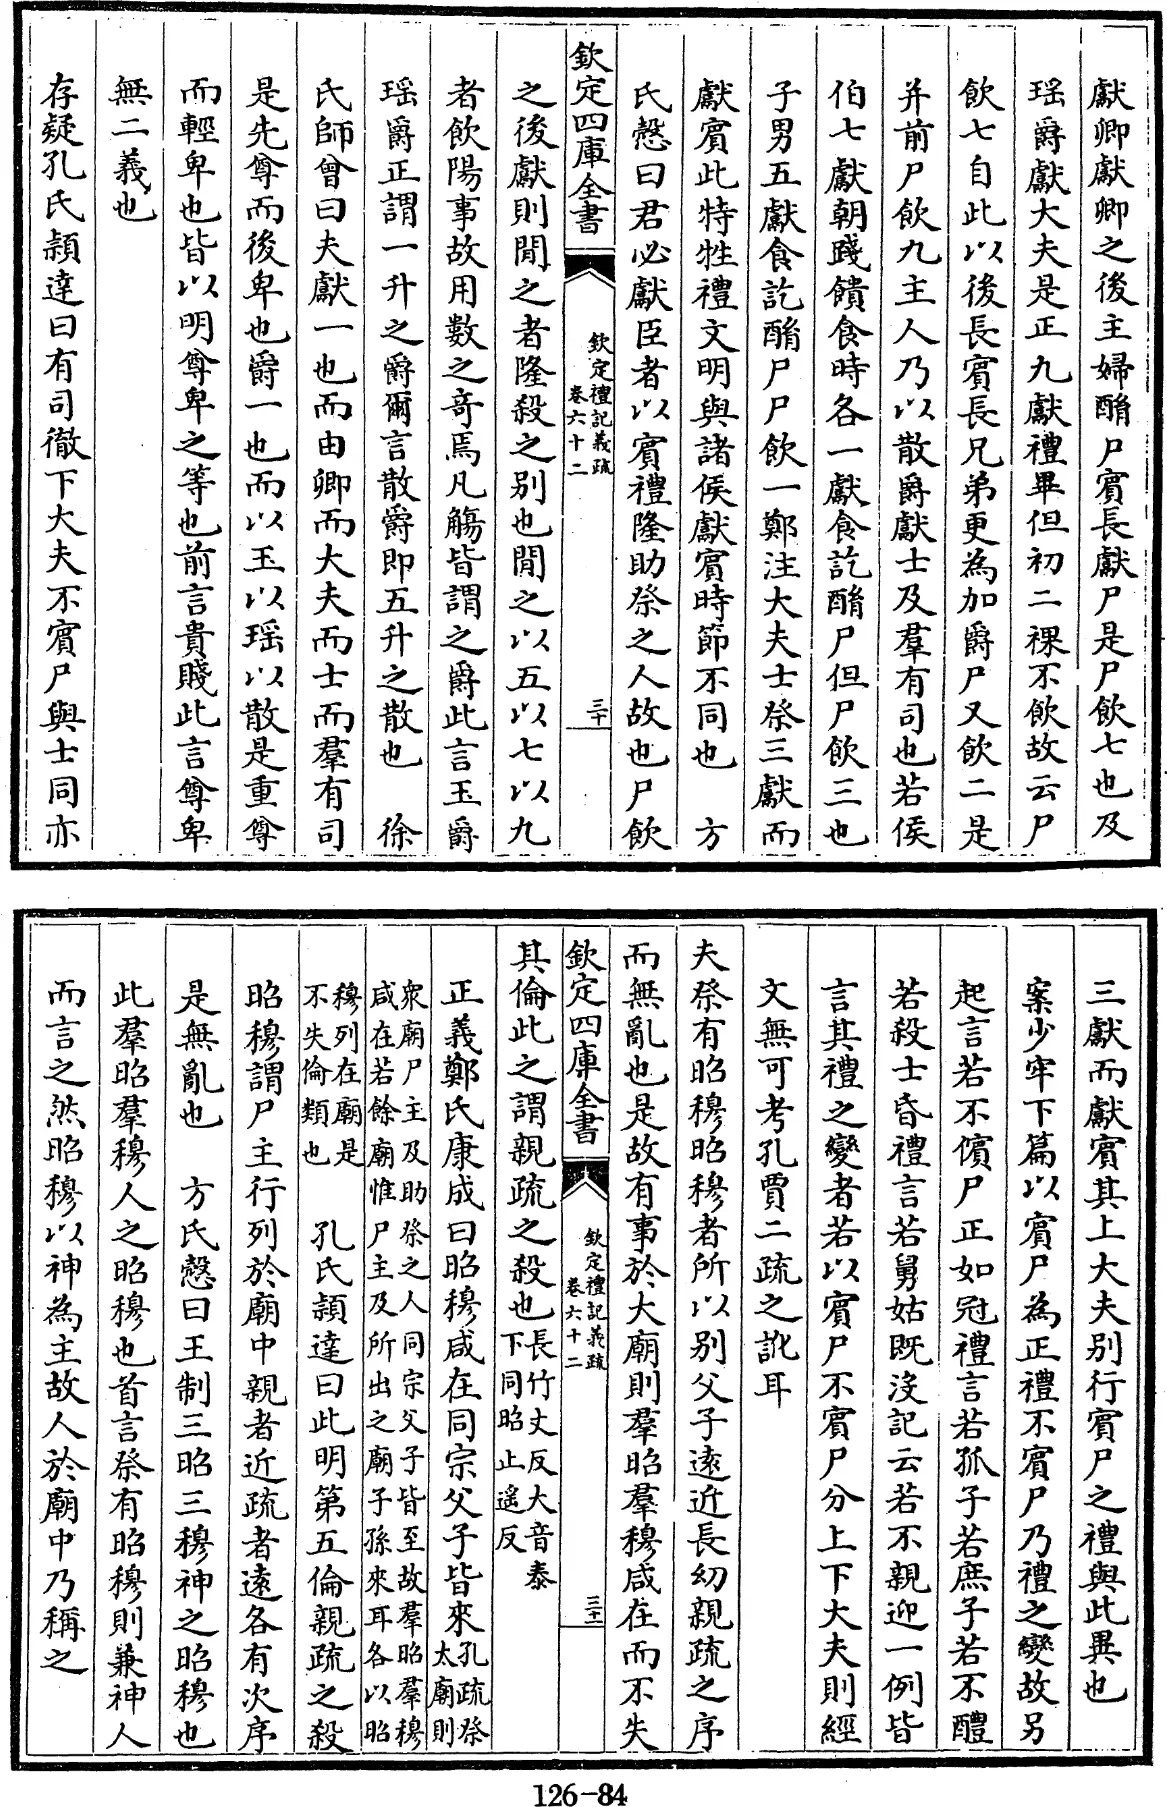 獻卿獻卿之後主婦酳尸賓長獻尸是尸飲七也及
瑶爵獻大夫是正九獻禮畢但初二祼不飲故云尸
飲七自此以後長賓長兄弟更為加爵尸又飲二是
并前尸飲九主人乃以散爵獻士及羣有司也若侯
伯七獻朝踐饋食時各一獻食訖酳尸但尸飲三也
子男五獻食訖酳尸尸飲一鄭注大夫士祭三獻而
獻賓此特牲禮文明與諸侯獻賓時節不同也　方
氏慤曰君必獻臣者以賓禮隆助祭之人故也尸飲
欽定四庫全書
欽定禮記義疏
卷六十二
三十
之後獻則間之者隆殺之别也間之以五以七以九
者飲陽事故用數之竒焉凡觴皆謂之爵此言玉爵
瑶爵正謂一升之爵爾言散爵即五升之散也　徐
氏師曾曰夫獻一也而由卿而大夫而士而羣有司
是先尊而後卑也爵一也而以玉以瑶以散是重尊
而輕卑也皆以明尊卑之等也前言貴賤此言尊卑
無二義也
存疑孔氏穎達曰有司徹下大夫不賓尸與士同亦
三獻而獻賓其上大夫别行賓尸之禮與此異也
案少牢下篇以賓尸為正禮不賓尸乃禮之變故另
起言若不儐尸正如冠禮言若孤子若庶子若不醴
若殺士昏禮言若舅姑既沒記云若不親迎一例皆
言其禮之變者若以賓尸不賓尸分上下大夫則經
文無可考孔賈二疏之訛耳
夫祭有昭穆昭穆者所以别父子逺近長幼親疏之序
而無亂也是故有事於大廟則羣昭羣穆咸在而不失
欽定四庫全書
欽定禮記義疏
卷六十二
三十一
其倫此之謂親疏之殺也長竹丈反大音泰
下同昭止遥反
正義鄭氏康成曰昭穆咸在同宗父子皆來孔疏祭
太廟則
衆廟尸主及助祭之人同宗父子皆至故羣昭羣穆
咸在若餘廟惟尸主及所出之廟子孫來耳各以昭
穆列在廟是
不失倫類也　孔氏穎達曰此明第五倫親疏之殺
昭穆謂尸主行列於廟中親者近疏者逺各有次序
是無亂也　方氏慤曰王制三昭三穆神之昭穆也
此羣昭羣穆人之昭穆也首言祭有昭穆則兼神人
而言之然昭穆以神為主故人於廟中乃稱之
126-84